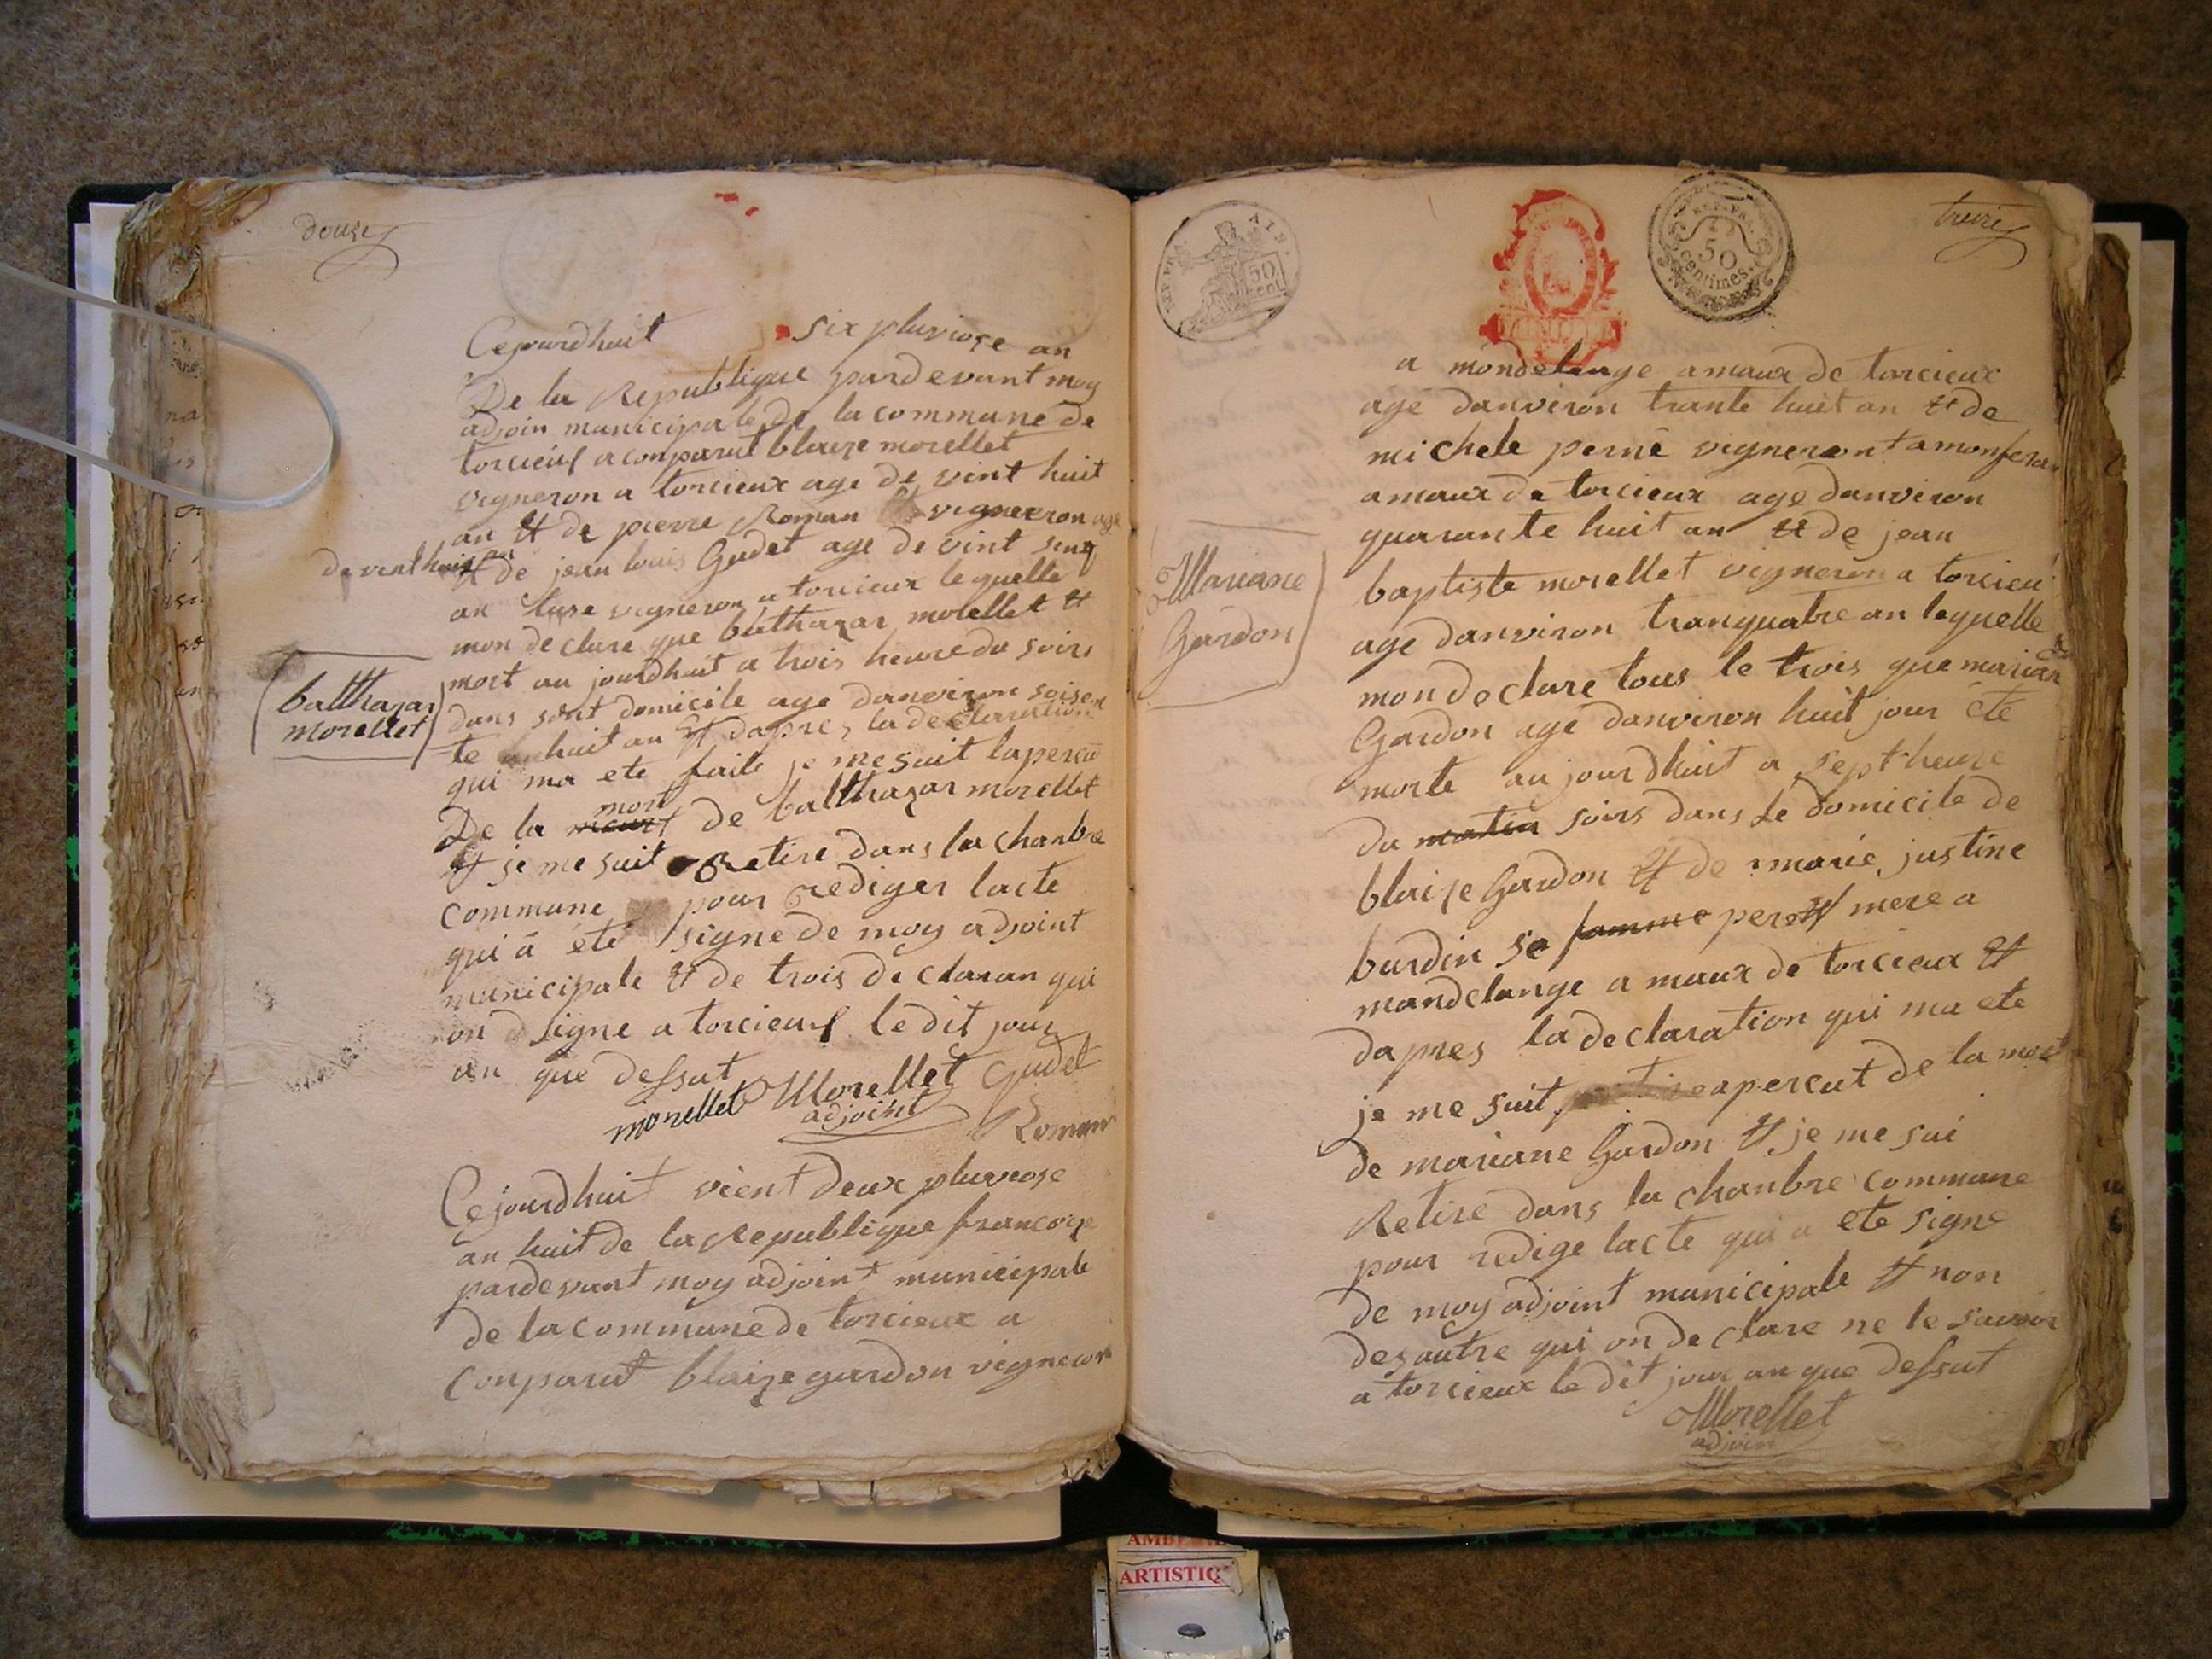 douze
Cejourdhuit six pluviose an
De la Republique pardevant moy
adjoin municipale de la commune de
torcieuf a conparut blaize morellet
vigneron a torcieux age de vint huit
an et de pierre Roman vigneron age
de vint huit an
et de jean louis Gudet age de vint sinq
an vigneron a torcieux lequelle
mon declare que balthazar morellet et
mort au jourdhuit a trois heure du soirs
dans sont domicile age danviron soisen
te huit an et dapres la declaration
balthazar
morellet
qui ma ete faite je me suit lapercu
De la mort de balthazar morellet
et je me suit Retire dans la chanbre
commune pour rediger lacte
qui a ete signe de moy adjoint
municipale et de trois declaran qui
on signe a torcieuf le dit jour
an que dessut
morellet Morellet Gudet
adjoint
Roman
Cejourdhuit vient deux pluviose
an huit de la Republique francoize
pardevant moy adjoint municipale
de la commune de torcieux a
conparut blaize gardon vigneron
REP. FRA. AIN.
50
cent
REP. FRA.
50
centimes
treize
a mondelange amaux de torcieux
age danviron trante huit an et de
michele perné vigneront a monferan
amaux de torcieux age danviron
quarante huit an et de jean
baptiste morellet vigneron a torcieu
age danviron tranquatre an lequelle
Mariane
Gardon
mon declare tous le trois que marian
Gardon age danviron huit jour ete
morte au jourdhuit a sept heure
du matin soirs dans le domicile de
blaize Gardon et de marie justine
burdin se famme pere et mere a
mandelange a maux de torcieux et
dapres la declaration qui ma ete
je me suit apercut de la mort
de mariane Gardon et je me sui
Retire dans la chanbre commune
pour redige lacte qui a ete signe
de moy adjoint municipale et non
des autre qui on declare ne le savoir
a torcieux le dit jour an que dessut
Morellet
adjoin
AMBERIE
ARTISTIQ